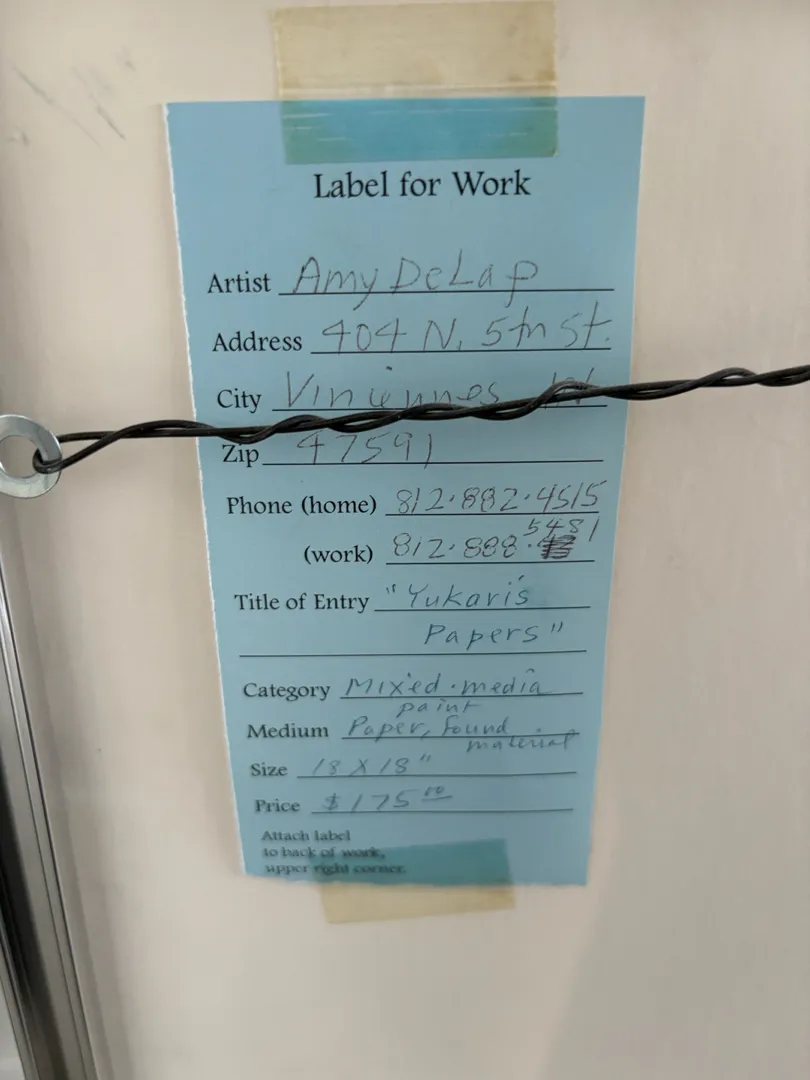 Label for Work
Artist Amy DeLap
Address 404 N. 5th St.
City Vincennes IN
Zip 47591
Phone (home) 812.882.4515
(work) 812.888.5481
Title of Entry "Yukari's
Papers"
Category Mixed-media
paint
Medium Paper, found
material
Size 18 X 18"
Price $175 00
Attach label
to back of work,
upper right corner.